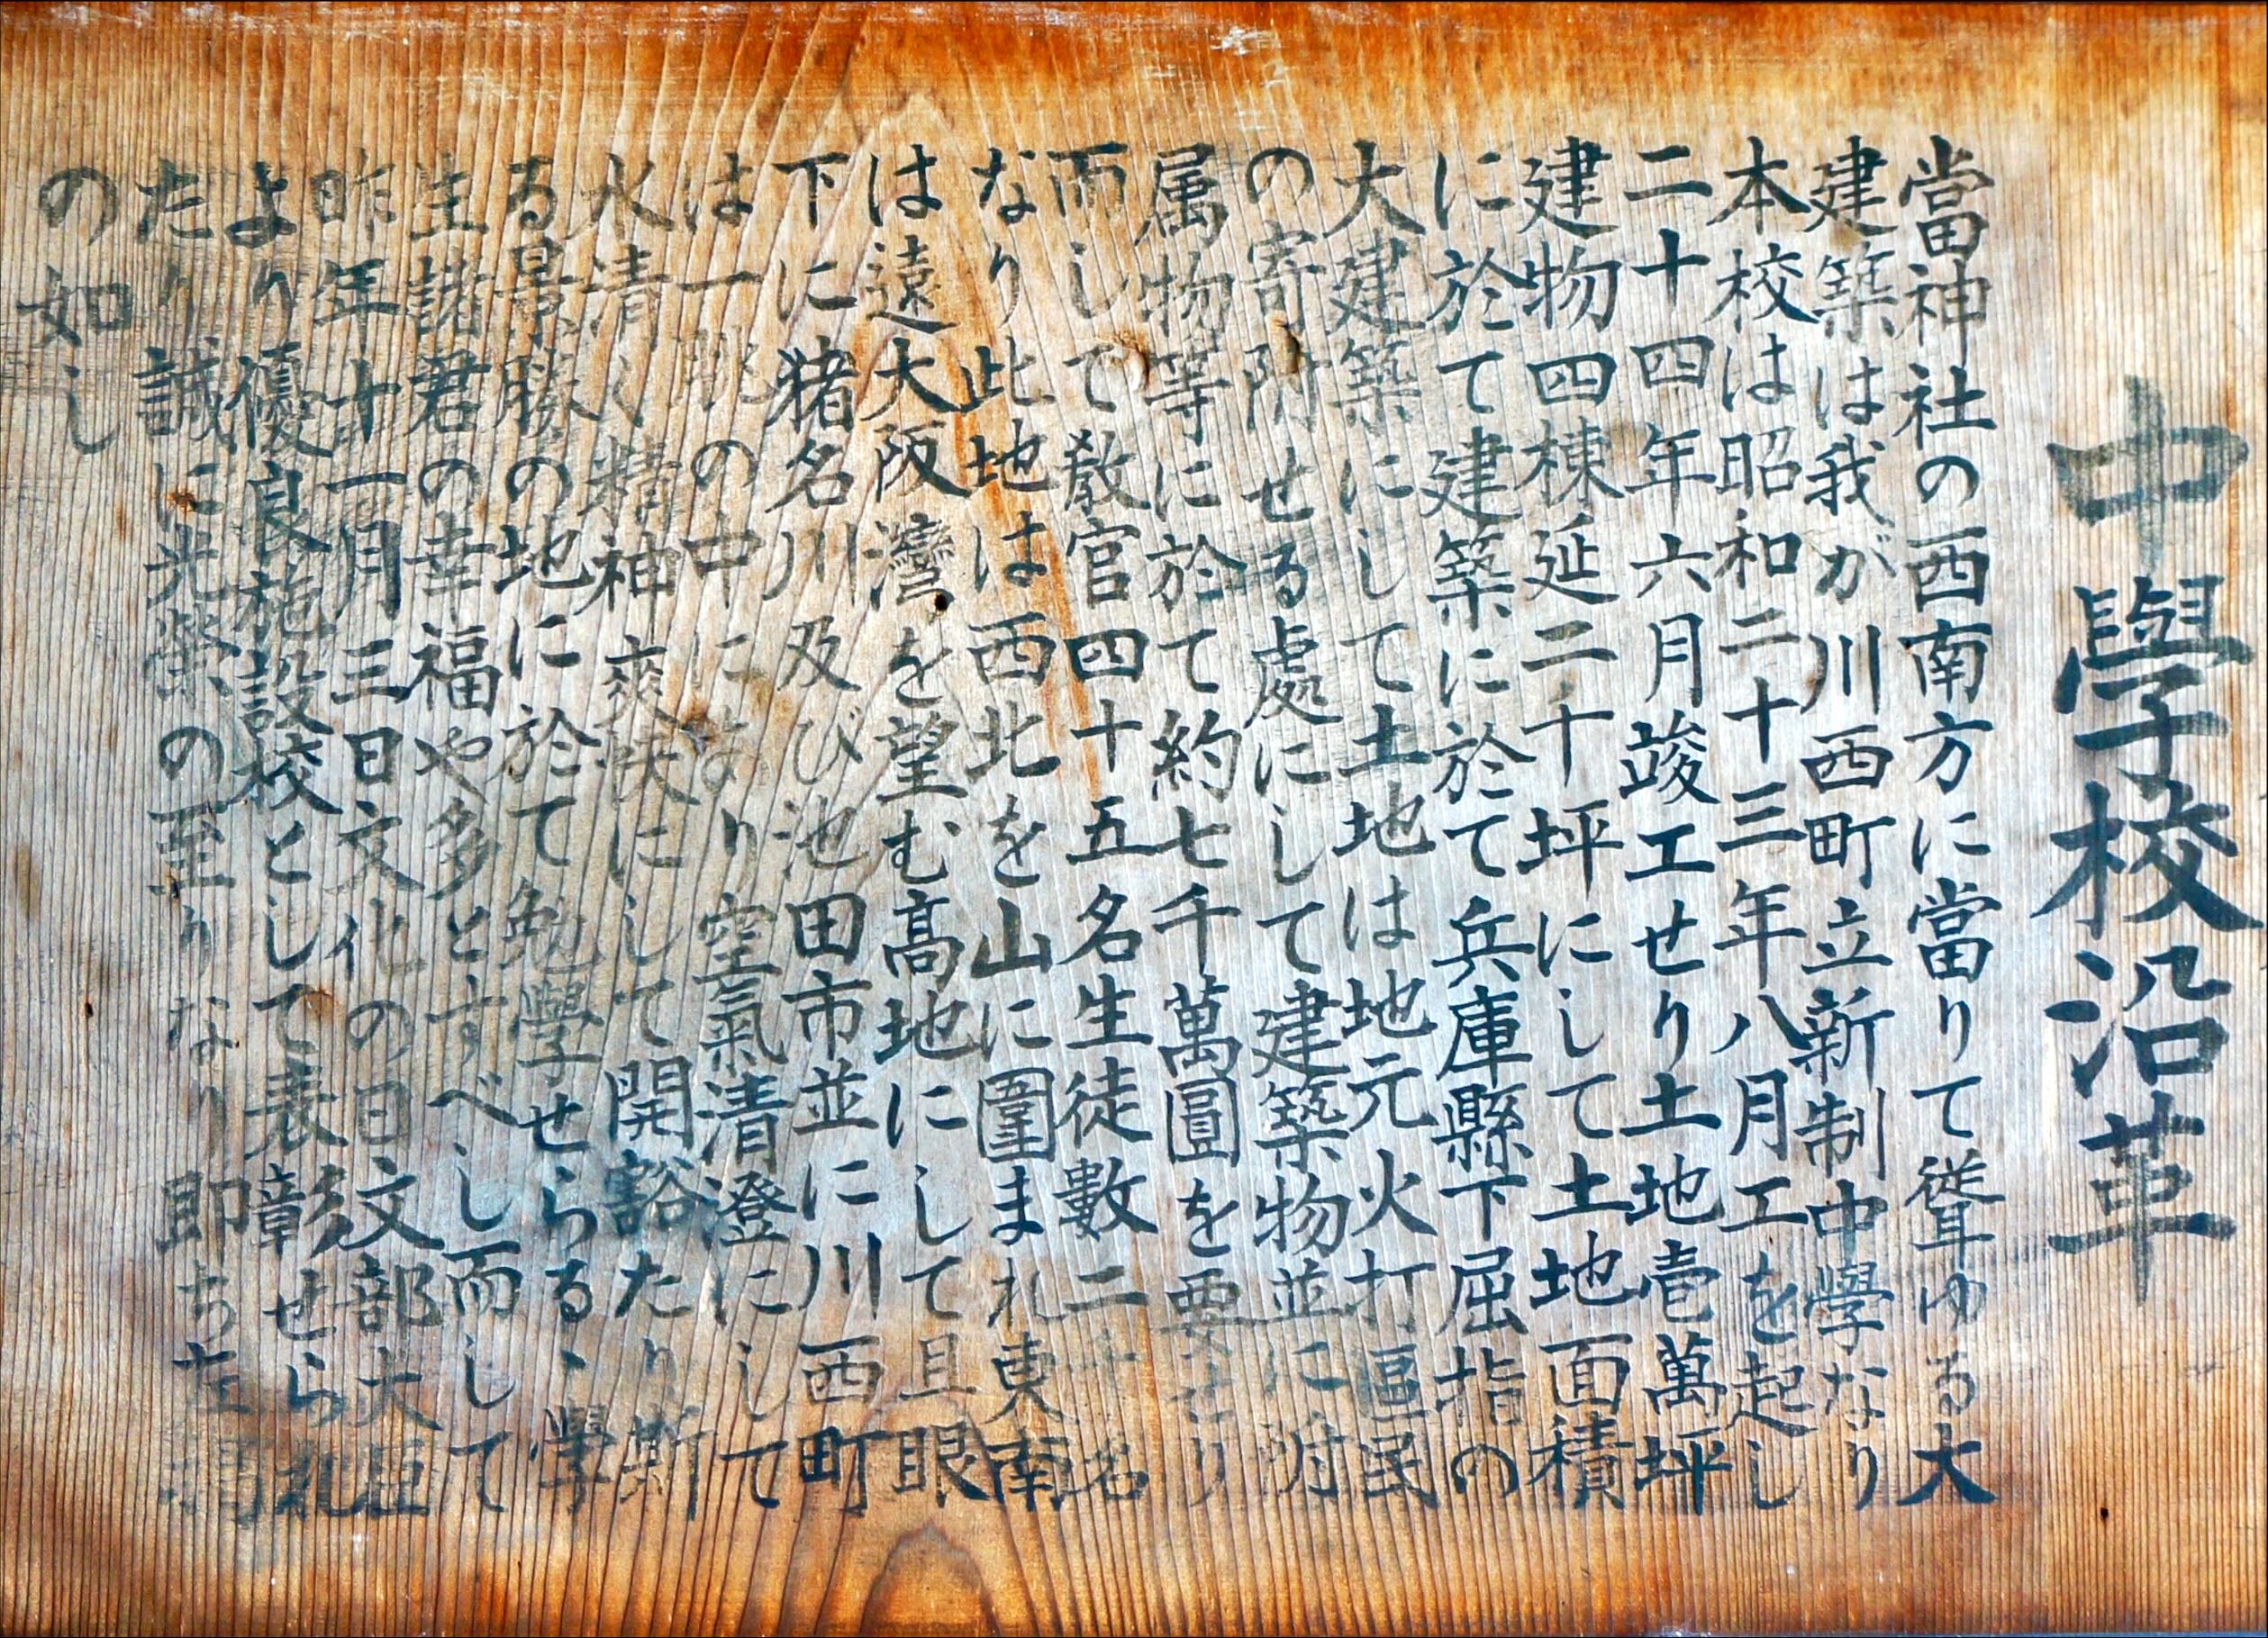 中學校沿革
當神社の西南方に當りて聳ゆる大
建築は我が川西町立新制中學なり
本校は昭和二十三年八月工を起し
二十四年六月竣工せり土地壱萬坪
建物四棟延二千坪にして土地面積
に於て建築に於て兵庫縣下屈指の
大建築にして土地は地元火打區民
の寄附せる處にして建築物並に附
属物等に於て約七千萬圓を要せり
而して教官四十五名生徒數二千名
なり此地は西北を山に圍まれ東南
は遠大阪灣を望む高地にして且眼
下に猪名川及び池田市並に川西町
は一眺の中にあり空氣清澄にして
水清く精神爽快にして開豁たり斯
る景勝の地に於て勉學せらるゝ學
生諸君の幸福や多とすべし而して
昨年十一月三日文化の日文部大臣
より優良施設校として表彰せられ
たり誠に光榮の至りなり即ち左
の如し